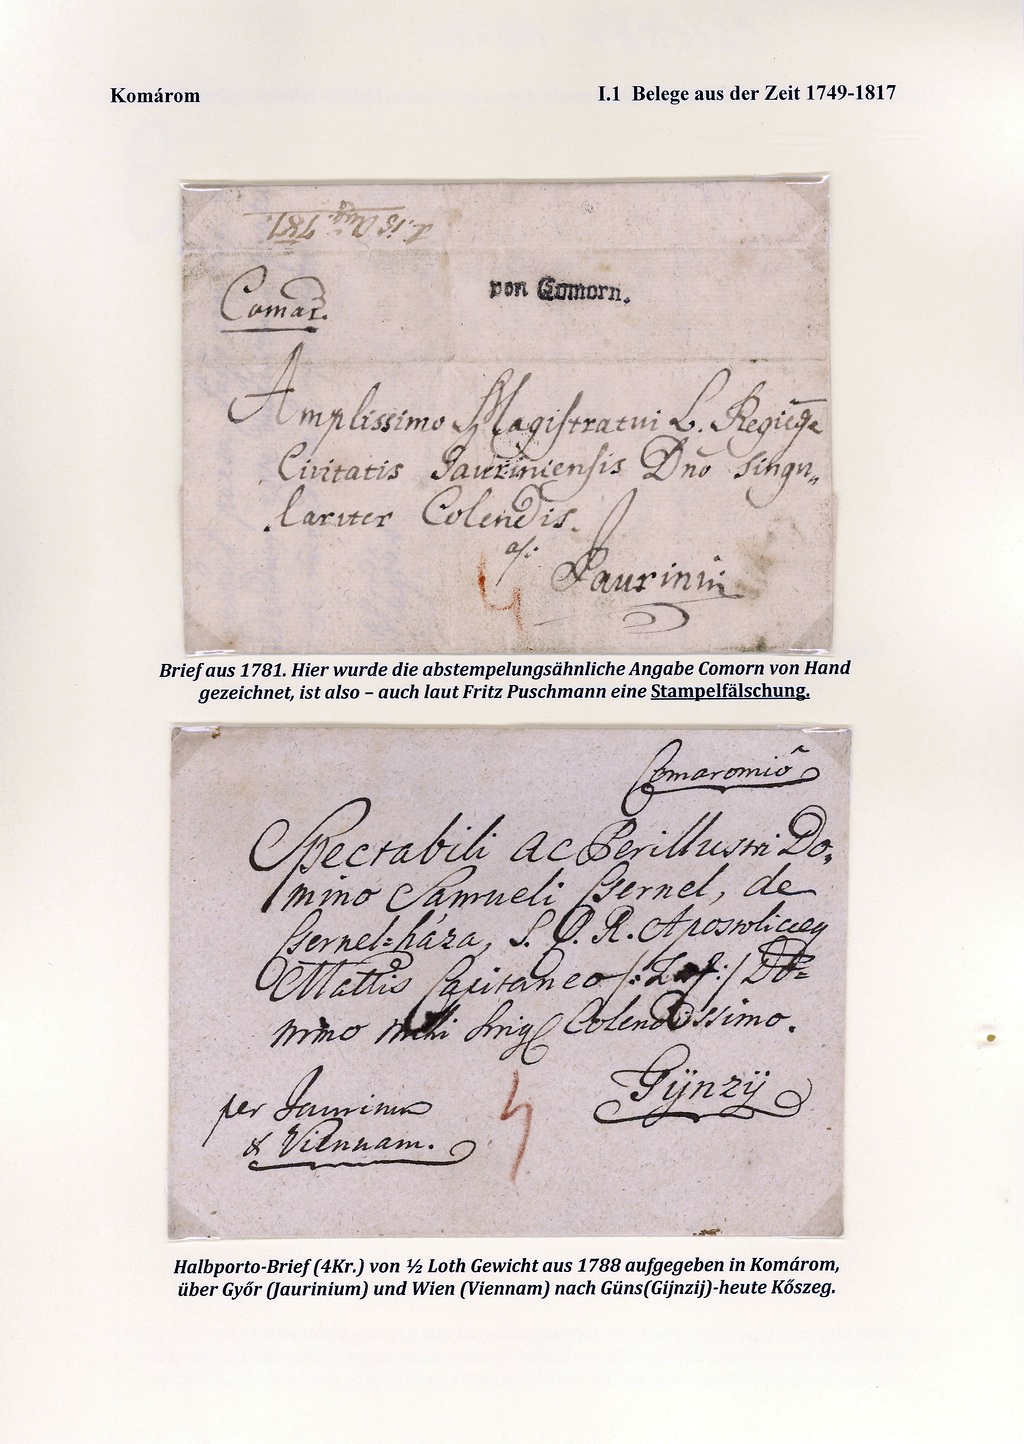 Komárom
I.1 Belege aus der Zeit 1749-1817
Comar.
von Comorn.
Amplissimo Magistratui L. Regiæq
Civitatis Jauriniensis Dno singu„
lariter Colendis.
a/:
Jaurinii
4
Brief aus 1781. Hier wurde die abstempelungsähnliche Angabe Comorn von Hand
gezeichnet, ist also – auch laut Fritz Puschmann eine Stampelfälschung.
Comaromio
Spectabili ac Perillustri Do„
mino Samueli Gernel, de
Gernel=háza, S. C. R. Apostolicæq
Mattis Capitaneo Do=
mino mihi Sing Colendissimo.
Gÿnzÿ
per Jaurinum
& Viennam.
4
Halbporto-Brief (4Kr.) von ½ Loth Gewicht aus 1788 aufgegeben in Komárom,
über Győr (Jaurinium) und Wien (Viennam) nach Güns(Gijnzij)-heute Kőszeg.